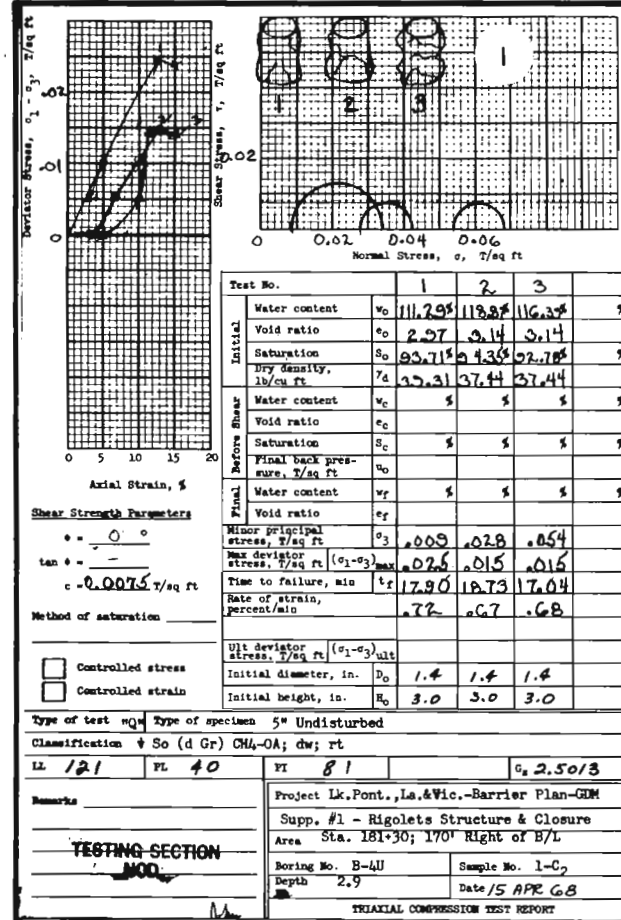 Deviator Stress, σ1 - σ3, T/sq ft
.02
.01
0
0 5 10 15 20
Axial Strain, %
Shear Stress, τ, T/sq ft
0.02
1 2 3
1
0 0.02 0.04 0.06
Normal Stress, σ, T/sq ft
Shear Strength Parameters
φ = 0 °
tan φ = -
c = 0.0075 T/sq ft
Method of saturation
Controlled stress
Controlled strain
Test No. 1 2 3
Initial
Water content w₀ 111.29% 118.87% 116.39% %
Void ratio e₀ 2.97 3.14 3.14
Saturation S₀ 93.71% 94.35% 92.78% %
Dry density, lb/cu ft γd 39.31 37.44 37.44
Before Shear
Water content wc % % % %
Void ratio ec
Saturation Sc % % % %
Final back pressure, T/sq ft u₀
Final
Water content wf % % % %
Void ratio ef
Minor principal stress, T/sq ft σ3 .009 .028 .054
Max deviator stress, T/sq ft (σ1-σ3)max .025 .015 .015
Time to failure, min tf 17.90 18.73 17.04
Rate of strain, percent/min .72 .67 .68
Ult deviator stress, T/sq ft (σ1-σ3)ult
Initial diameter, in. D₀ 1.4 1.4 1.4
Initial height, in. H₀ 3.0 3.0 3.0
Type of test "Q" Type of specimen 5" Undisturbed
Classification So (d Gr) CH4-OA; dw; rt
LL 121 PL 40 PI 81 Gs 2.5013
Remarks
TESTING SECTION
NOD
Project Lk.Pont.,La.&Vic.-Barrier Plan-GDM
Supp. #1 - Rigolets Structure & Closure
Area Sta. 181+30; 170' Right of B/L
Boring No. B-4U Sample No. 1-C2
Depth 2.9 Date 15 APR 68
TRIAXIAL COMPRESSION TEST REPORT